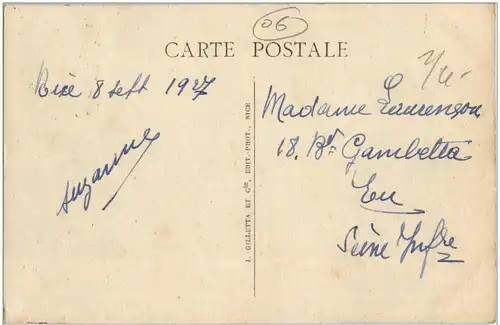 06
CARTE POSTALE
Nice 8 sept 1927
Suzanne
J. GILLETTA ET Cie, EDIT.-PHOT., NICE
Madame Laurençon
18. Bd Gambetta
Eu
Seine Infre